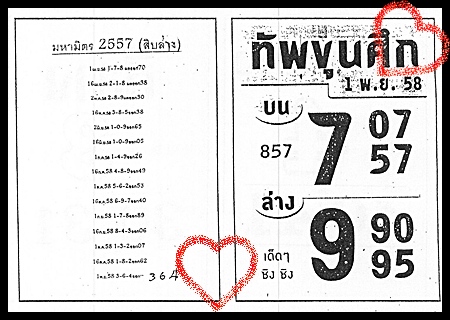 มหามิตร 2557 (สิบล่าง)
1-7-8 ออก70
2-1-8 ออก38
2-8-9ออก30
16ก.ค.58 3-8-5ออก38
1-0-9ออก65
1-0-9ออก05
1-4-9ออก26
16ก.ค.58 4-8-9ออก49
1ส.ค.58 5-6-2ออก53
16ส.ค.58 6-9-7ออก40
1ก.ย.58 1-7-8ออก89
16ก.ย.58 8-4-3ออก06
1ต.ค.58 1-3-2ออก07
16ต.ค.58 1-8-2ออก62
1พ.ย.58 3-6-4ออก
364
ทัพขุนศึก
1 พ.ย. 58
บน
857
7
07
57
ล่าง
เด็ดๆ
ซิง ซิง
9
90
95